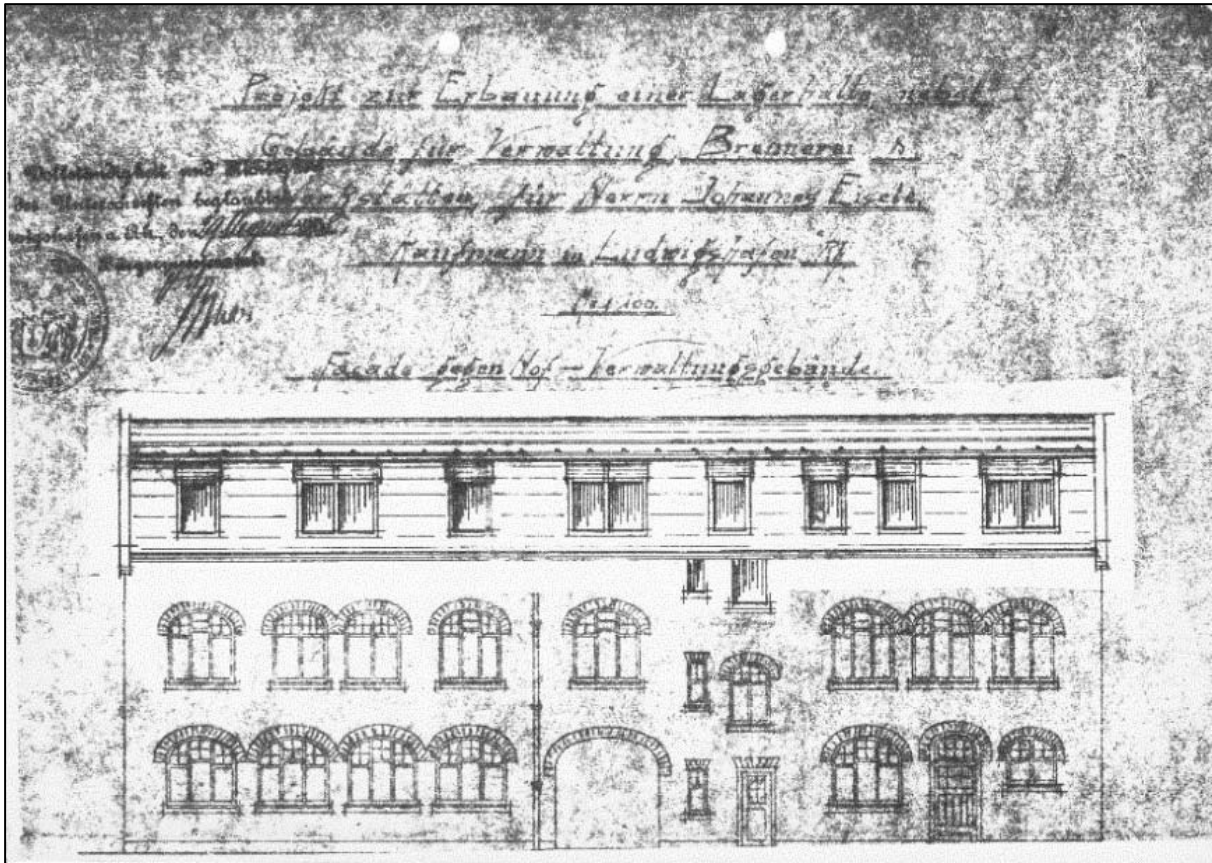 Projekt zur Erbauung einer Lagerhalle nebst
Gebäude für Verwaltung, Brennerei &
Werkstätten, für Herrn Johannes Eisele,
Kaufmann in Ludwigshafen a/Rh
1:100.
Facade gegen Hof – Verwaltungsgebäude.
Vollständigkeit und
der Unterschriften beglaubigt
a. Rh., den